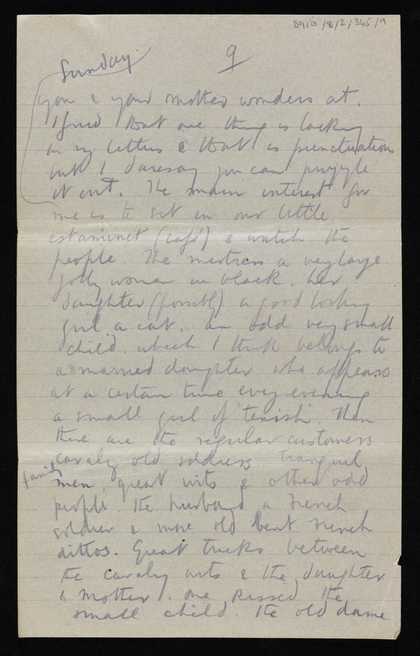 8910/8/2/365/9
Sunday. 9
you & your mother wonders at.
I find that one thing is lacking
in my letters & that is punctuation
but I daresay you can puzzle
it out. The main interest for
me is to sit in our little
estaminet (café) & watch the
people. The mistress a very large
jolly woman in black. her
daughter (possibly) a good looking
girl. a cat. an odd very small
child. which I think belongs to
a married daughter who appears
at a certain time every evening
a small girl of tenish. Then
there are the regular customers
cavalry old soldiers tranquil
family
men, great wits & other odd
people. the husband a French
soldier & more old bent French
dittos. Great tricks between
the cavalry wits & the daughter
& mother. one kissed the
small child. the old dame